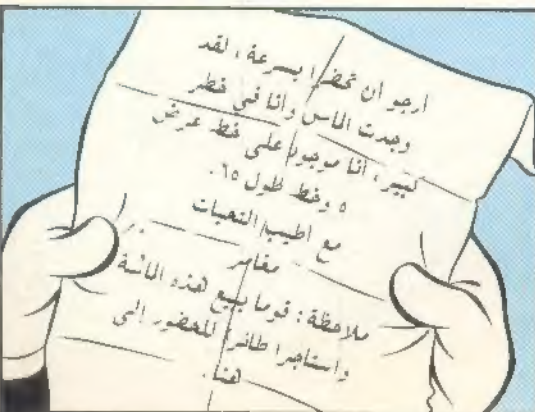 ارجو ان تحضرا بسرعة ، لقد
وجدت الماس وانا في خطر
كبير ، انا موجود على خط عرض
٥ وخط طول ٦٥ .
مع اطيب التحيات
مغامر
ملاحظة : قوما ببيع هذه الماسة
واستأجرا طائرة للحضور الى
هنا .